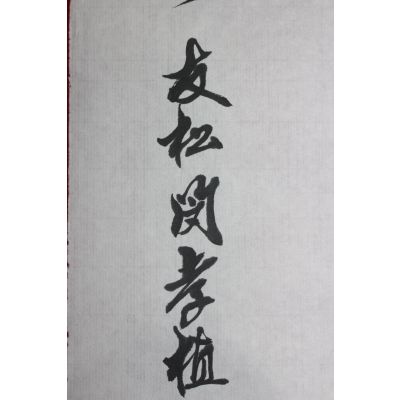 友松閔孝植